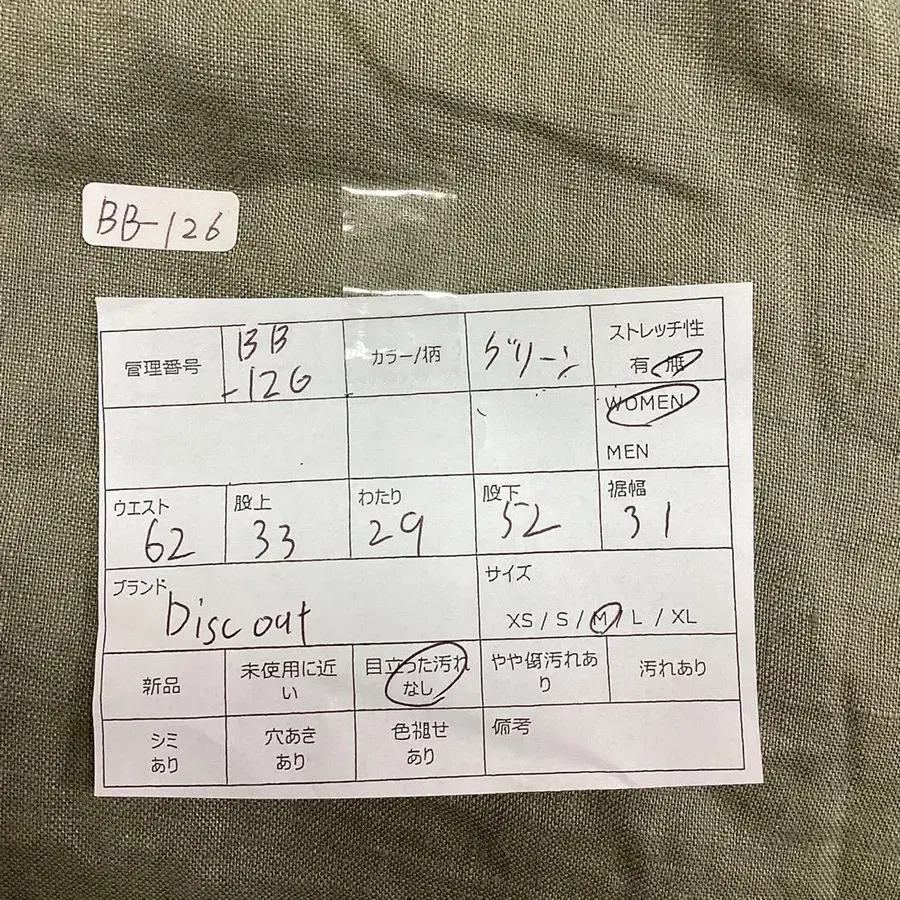 BB-126
管理番号
BB
-126
カラー/柄
グリーン
ストレッチ性
有 無
WOMEN
MEN
ウエスト
62
股上
33
わたり
29
股下
52
裾幅
31
ブランド
Discoat
サイズ
XS / S / M / L / XL
新品
未使用に近
い
目立った汚れ
なし
やや傷汚れあ
り
汚れあり
シミ
あり
穴あき
あり
色褪せ
あり
備考